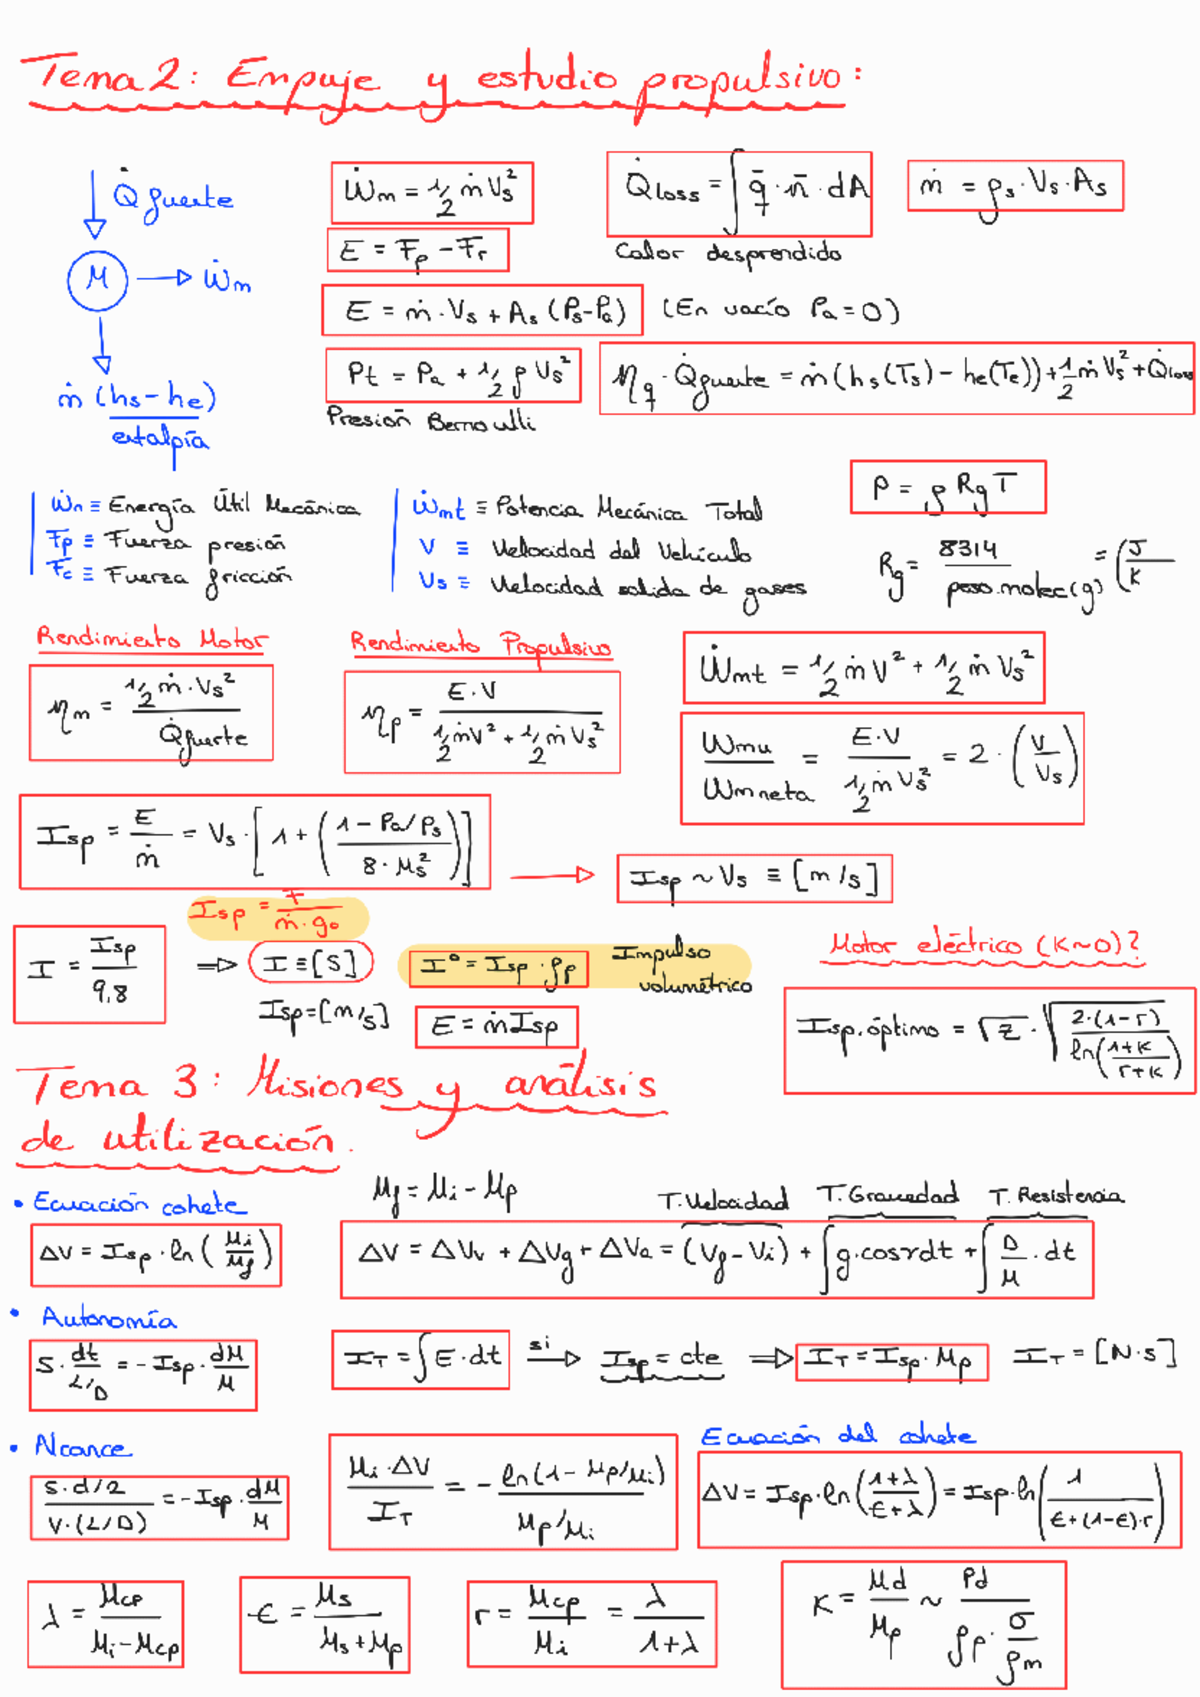 Tema 2: Empuje y estudio propulsivo:
Q̇ fuerte
M → Ẇm
ṁ (hs - he)
entalpía
Ẇm = 1/2 ṁ Vs²
Q̇loss = ∫ q̄ · n̄ · dA
Calor desprendido
ṁ = ρs · Vs · As
E = Fp - Fr
E = ṁ · Vs + As (Ps - Pa) (En vacío Pa = 0)
Pt = Pa + 1/2 ρ Vs²
Presión Bernoulli
ηq · Q̇fuerte = ṁ (hs(Ts) - he(Te)) + 1/2 ṁ Vs² + Q̇loss
Ẇn ≡ Energía Útil Mecánica
Fp ≡ Fuerza presión
Fc ≡ Fuerza fricción
Ẇmt ≡ Potencia Mecánica Total
V ≡ Velocidad del Vehículo
Vs ≡ Velocidad salida de gases
P = ρ Rg T
Rg = 8314 / peso.molec(g) = (J / K
Rendimiento Motor
ηm = 1/2 ṁ · Vs² / Q̇fuerte
Rendimiento Propulsivo
ηp = E · V / (1/2 ṁV² + 1/2 ṁ Vs²)
Ẇmt = 1/2 ṁ V² + 1/2 ṁ Vs²
Wmu / Wm neta = E · V / (1/2 ṁ Vs²) = 2 · (V / Vs)
Isp = E / ṁ = Vs · [1 + ((1 - Pa/Ps) / (8 · Ms²))]
Isp ~ Vs ≡ [m/s]
Isp = F / (ṁ · g₀)
I = Isp / 9,8 ⇒ I ≡ [S]
Isp = [m/s]
I° = Isp · ρp Impulso volumétrico
E = ṁ Isp
Motor eléctrico (K~0)?
Isp.óptimo = √Z · √(2·(1-r) / ln((1+K)/(r+K)))
Tema 3: Misiones y análisis
de utilización.
• Ecuación cohete
Mf = Mi - Mp
T.Velocidad T.Gravedad T. Resistencia
ΔV = Isp · ln (Mi / Mf)
ΔV = ΔVv + ΔVg + ΔVa = (Vf - Vi) + ∫ g·cosγdt + ∫ D/M · dt
• Autonomía
S · dt / L/D = - Isp · dM / M
IT = ∫ E · dt si → Isp = cte ⇒ IT = Isp · Mp IT = [N·s]
• Alcance
S · d/2 / V · (L/D) = - Isp · dM / M
Mi · ΔV / IT = - ln(1 - Mp/Mi) / Mp/Mi
Ecuación del cohete
ΔV = Isp · ln((1+λ) / (ε+λ)) = Isp · ln(1 / (ε+(1-ε)·r))
λ = Mcp / (Mi - Mcp)
ε = Ms / (Ms + Mp)
r = Mcp / Mi = λ / (1+λ)
K = Md / Mp ~ Pd / (ρp · σ/ρm)